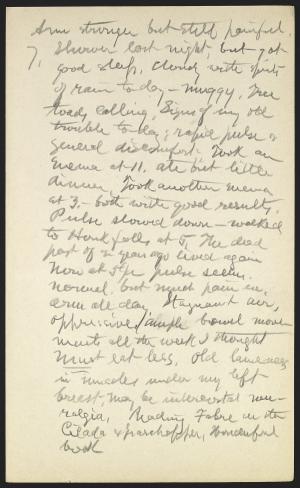 Arm stronger but still painful.
7, Shower last night, but got
good sleep, cloudy with spirts
of rain to-day - muggy, Tree
toads calling. Signs of my old
trouble to-day; rapid pulse &
general discomfort. Took an
enema at 11. ate but little
dinner, Took another enema
at 3, - both with good results.
Pulse slowed down - walked
to Honk falls at 5. The dead
past of 52 years ago lived again
Now at 8 P pulse seems
normal, but much pain in
arm all day. Stagnant air,
oppressive, ample bowel move-
ments all the week I thought
Must eat less. Old lameness
in muscles under my left
breast, may be intercostal neu-
ralgia, Reading Fabre on the
Cicada & Grasshopper, Wonderful
book